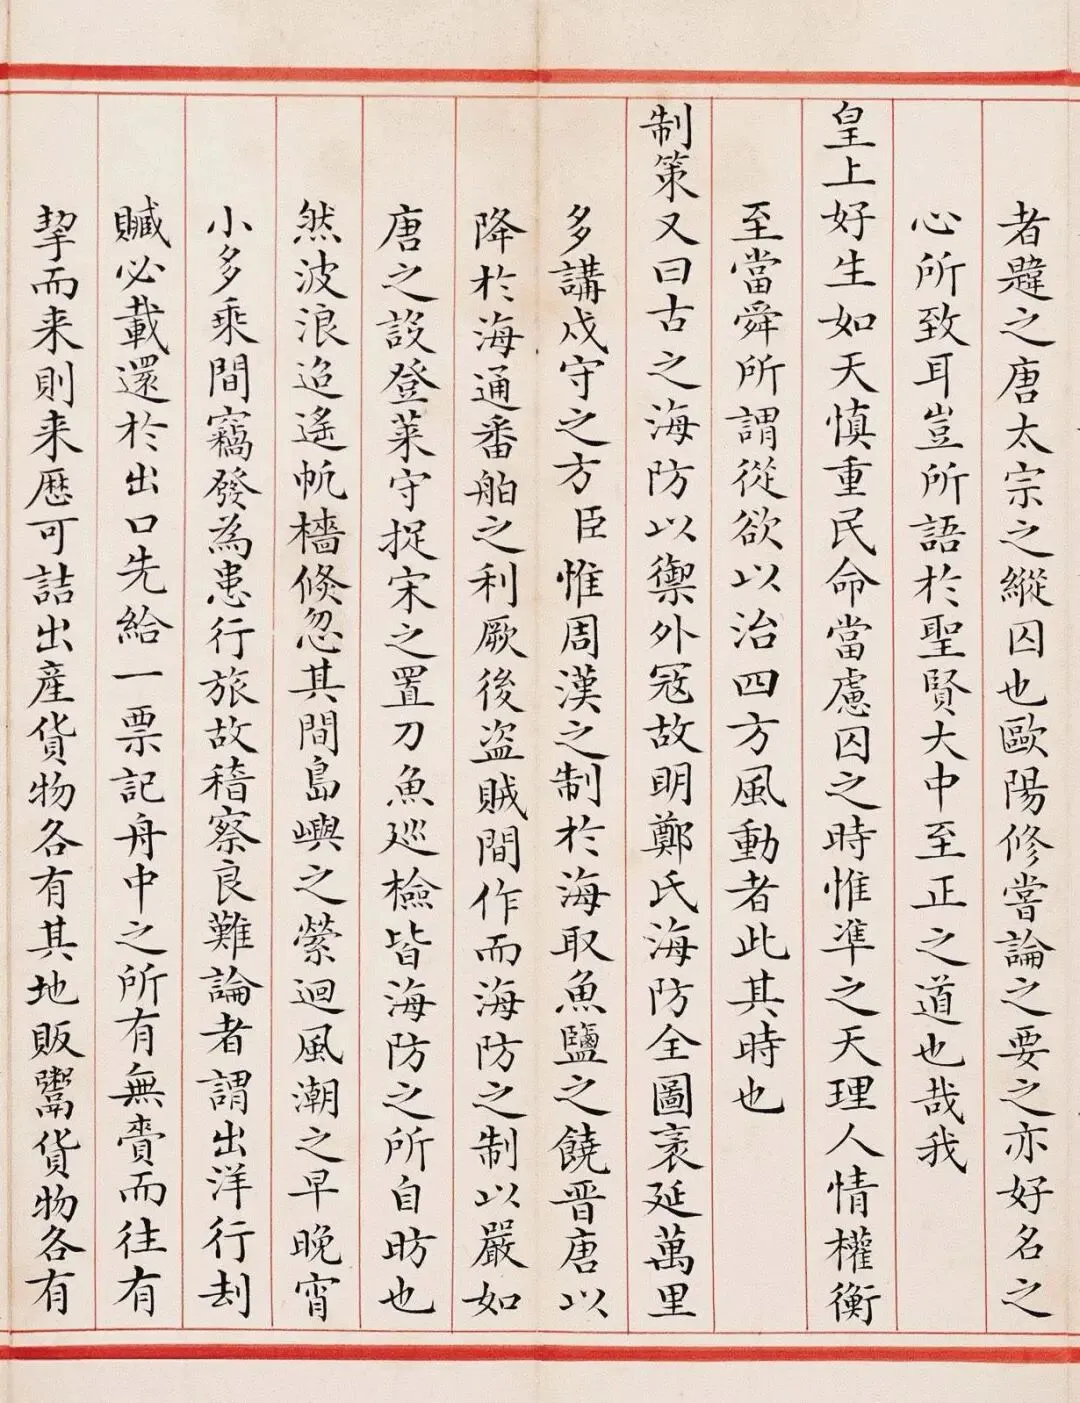 者韙之唐太宗之縱囚也歐陽修嘗論之要之亦好名之
心所致耳豈所語於聖賢大中至正之道也哉我
皇上好生如天慎重民命當慮囚之時惟準之天理人情權衡
至當舜所謂從欲以治四方風動者此其時也
制策又曰古之海防以禦外寇故明鄭氏海防全圖袤延萬里
多講戍守之方臣惟周漢之制於海取魚鹽之饒晋唐以
降於海通番舶之利厥後盜賊間作而海防之制以嚴如
唐之設登萊守捉宋之置刀魚巡檢皆海防之所自昉也
然波浪迢遙帆檣倏忽其間島嶼之縈迴風潮之早晚宵
小多乘間竊發為患行旅故稽察良難論者謂出洋行刦
贓必載還於出口先給一票記舟中之所有無賫而往有
挈而来則来歷可詰出產貨物各有其地販鬻貨物各有